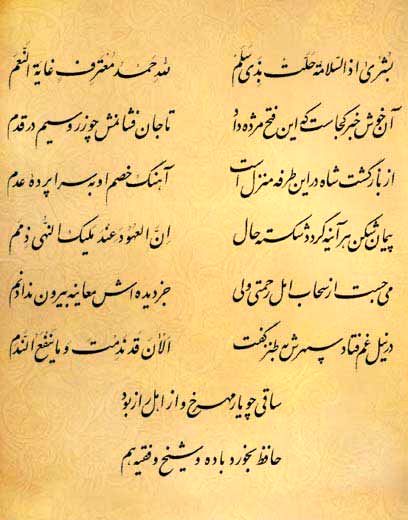 بُشریٰ اذ السَّلامةُ حَلَّت بِذی سَلَم لله حَمدُ مُعتَرِفٍ غایةَ النَّعَم
آن خوش خبر کجاست که این فتح مژده داد تا جان فشانمش چو زر و سیم در قدم
از بازگشت شاه در این طرفه منزل است آهنگ خصم او به سراپرده عدم
پیمان شکن هرآینه گردد شکسته حال اِنَّ العُهودَ عِندَ مَلیکِ النُّهیٰ ذِمَم
می‌جست از سحاب امل رحمتی ولی جز دیده‌اش معاینه بیرون نداد نم
در نیل غم فتاد سپهرش به طنز گفت الآنَ قَد نَدِمتَ و ما یَنفَعُ النَّدَم
ساقی چو یار مهرخ و از اهل راز بود
حافظ بخورد باده و شیخ و فقیه هم